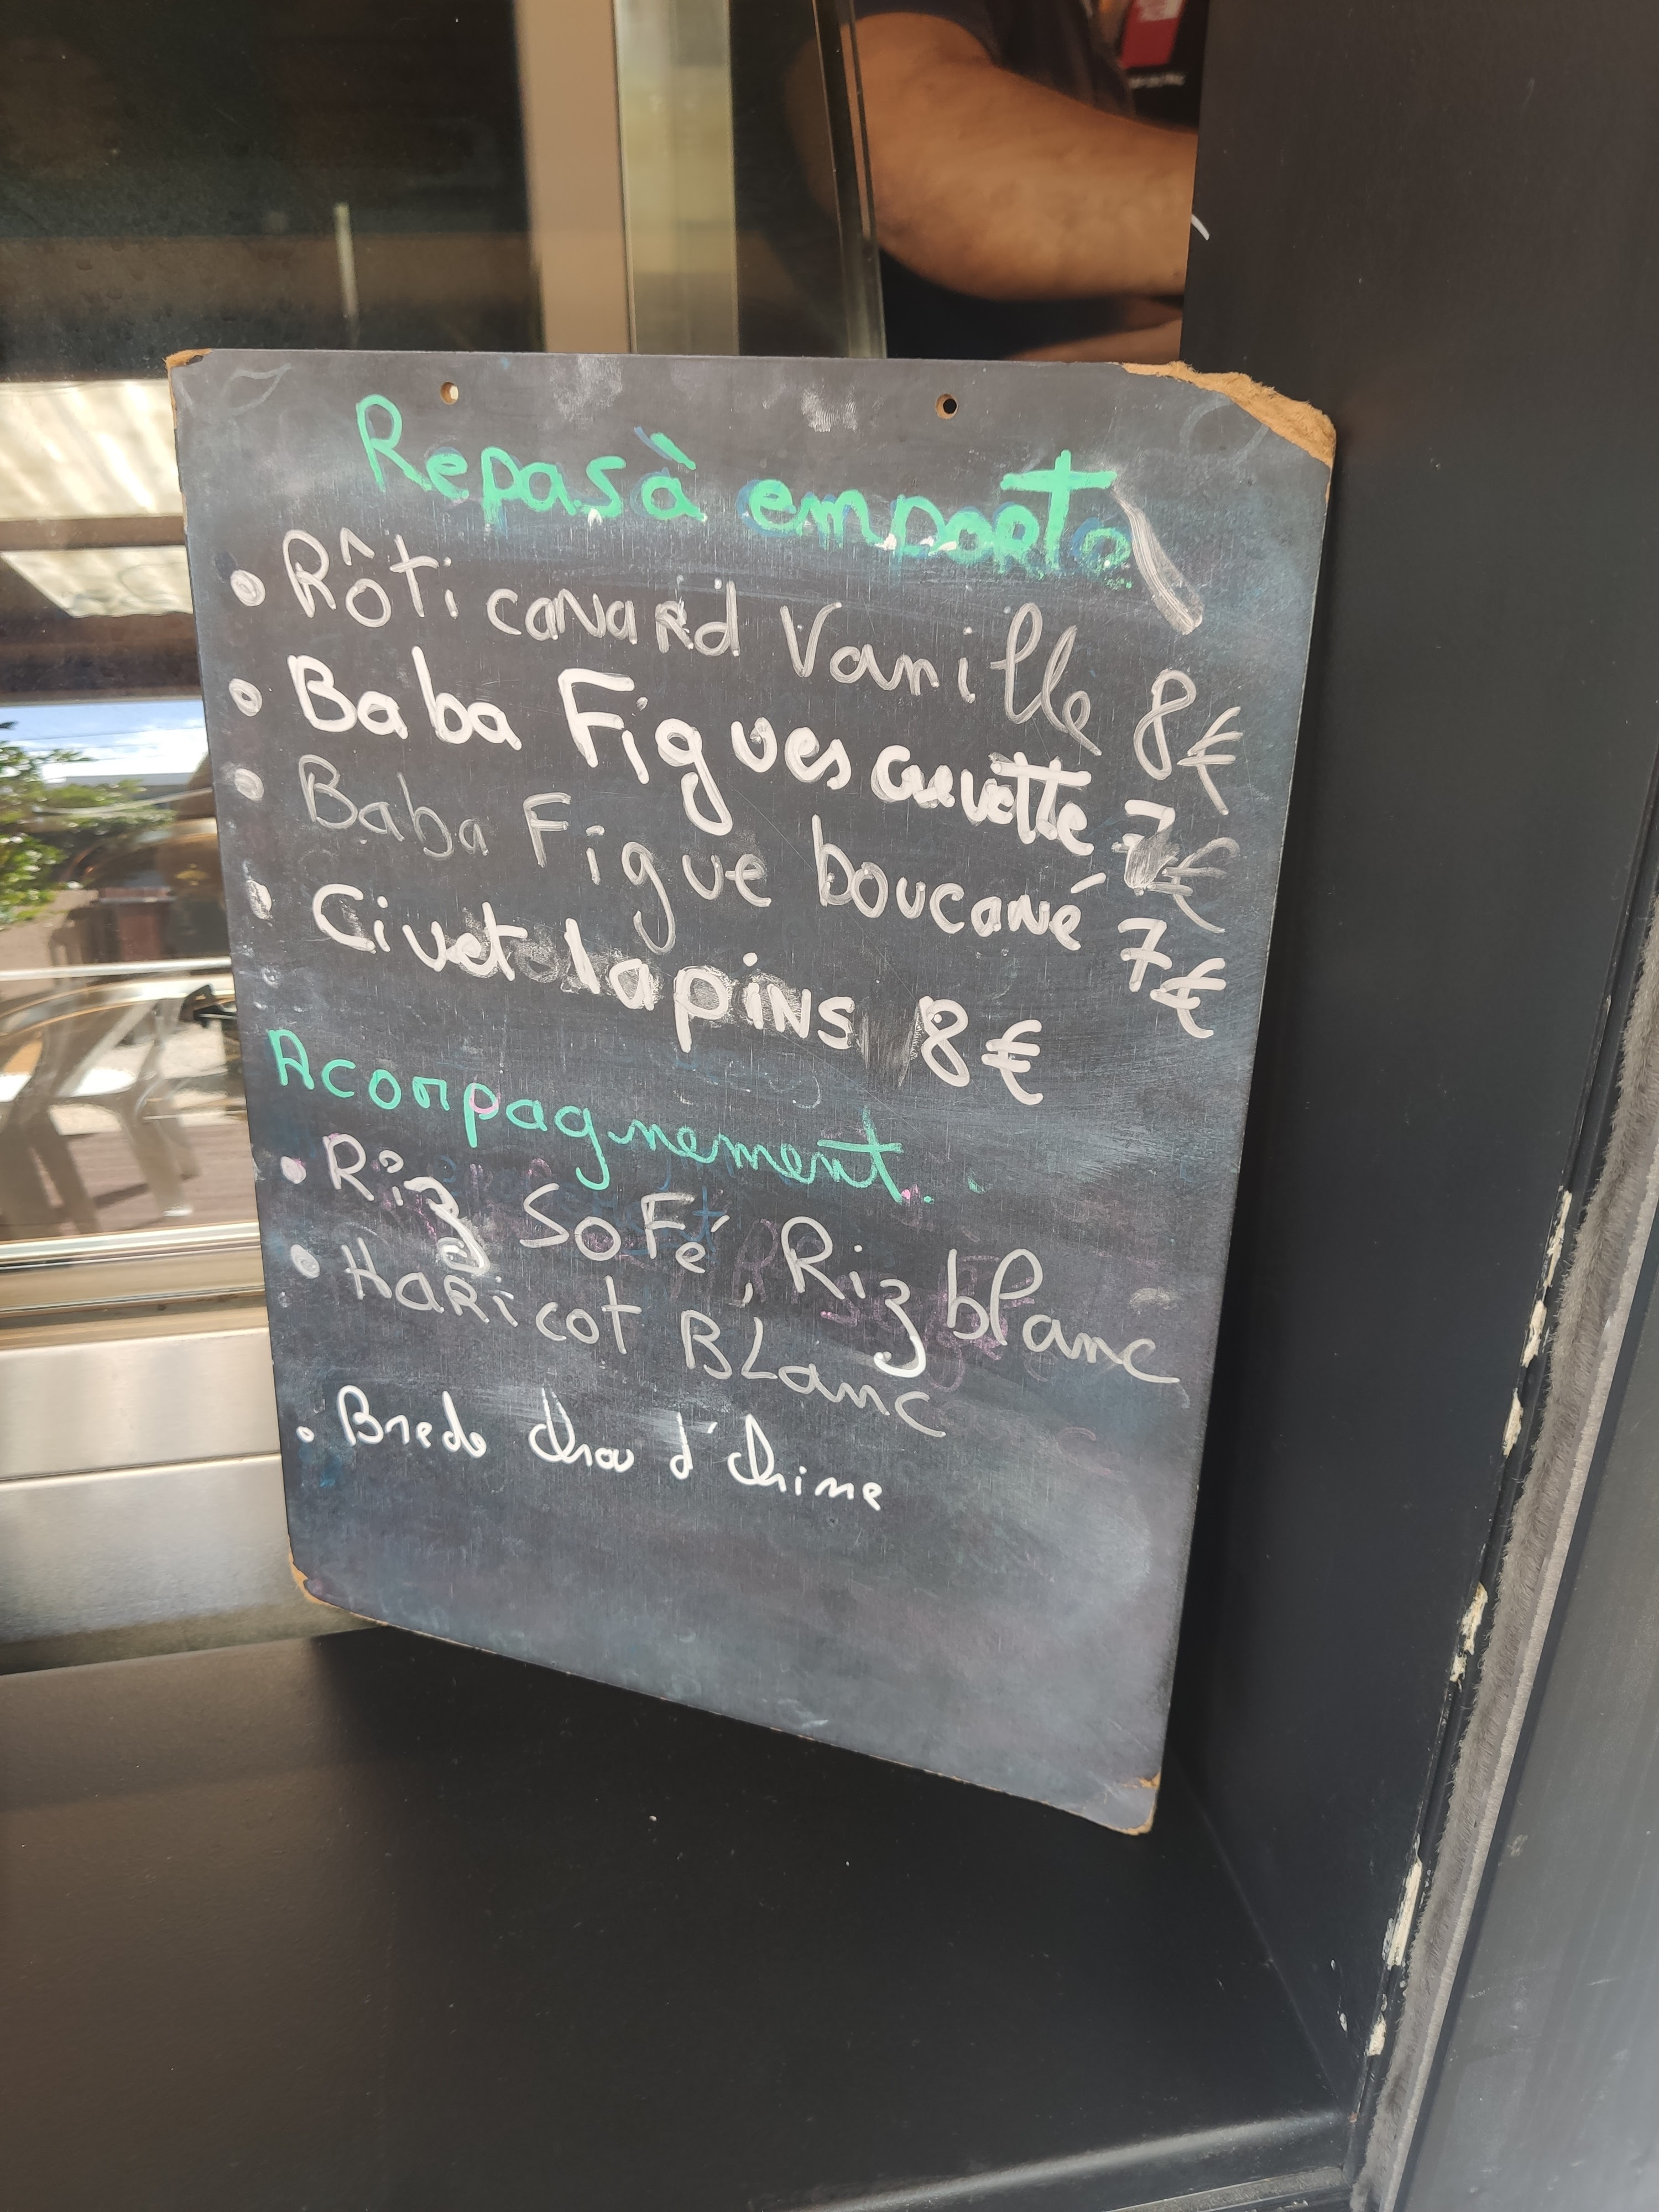 Repas à emporte
Rôti canard Vanille 8€
Baba Figues crevette 7€
Baba Figue boucané 7€
Civet lapins 8€
Acompagnement..
Riz SoFé, Riz blanc
Haricot Blanc
Brede chou d'chine